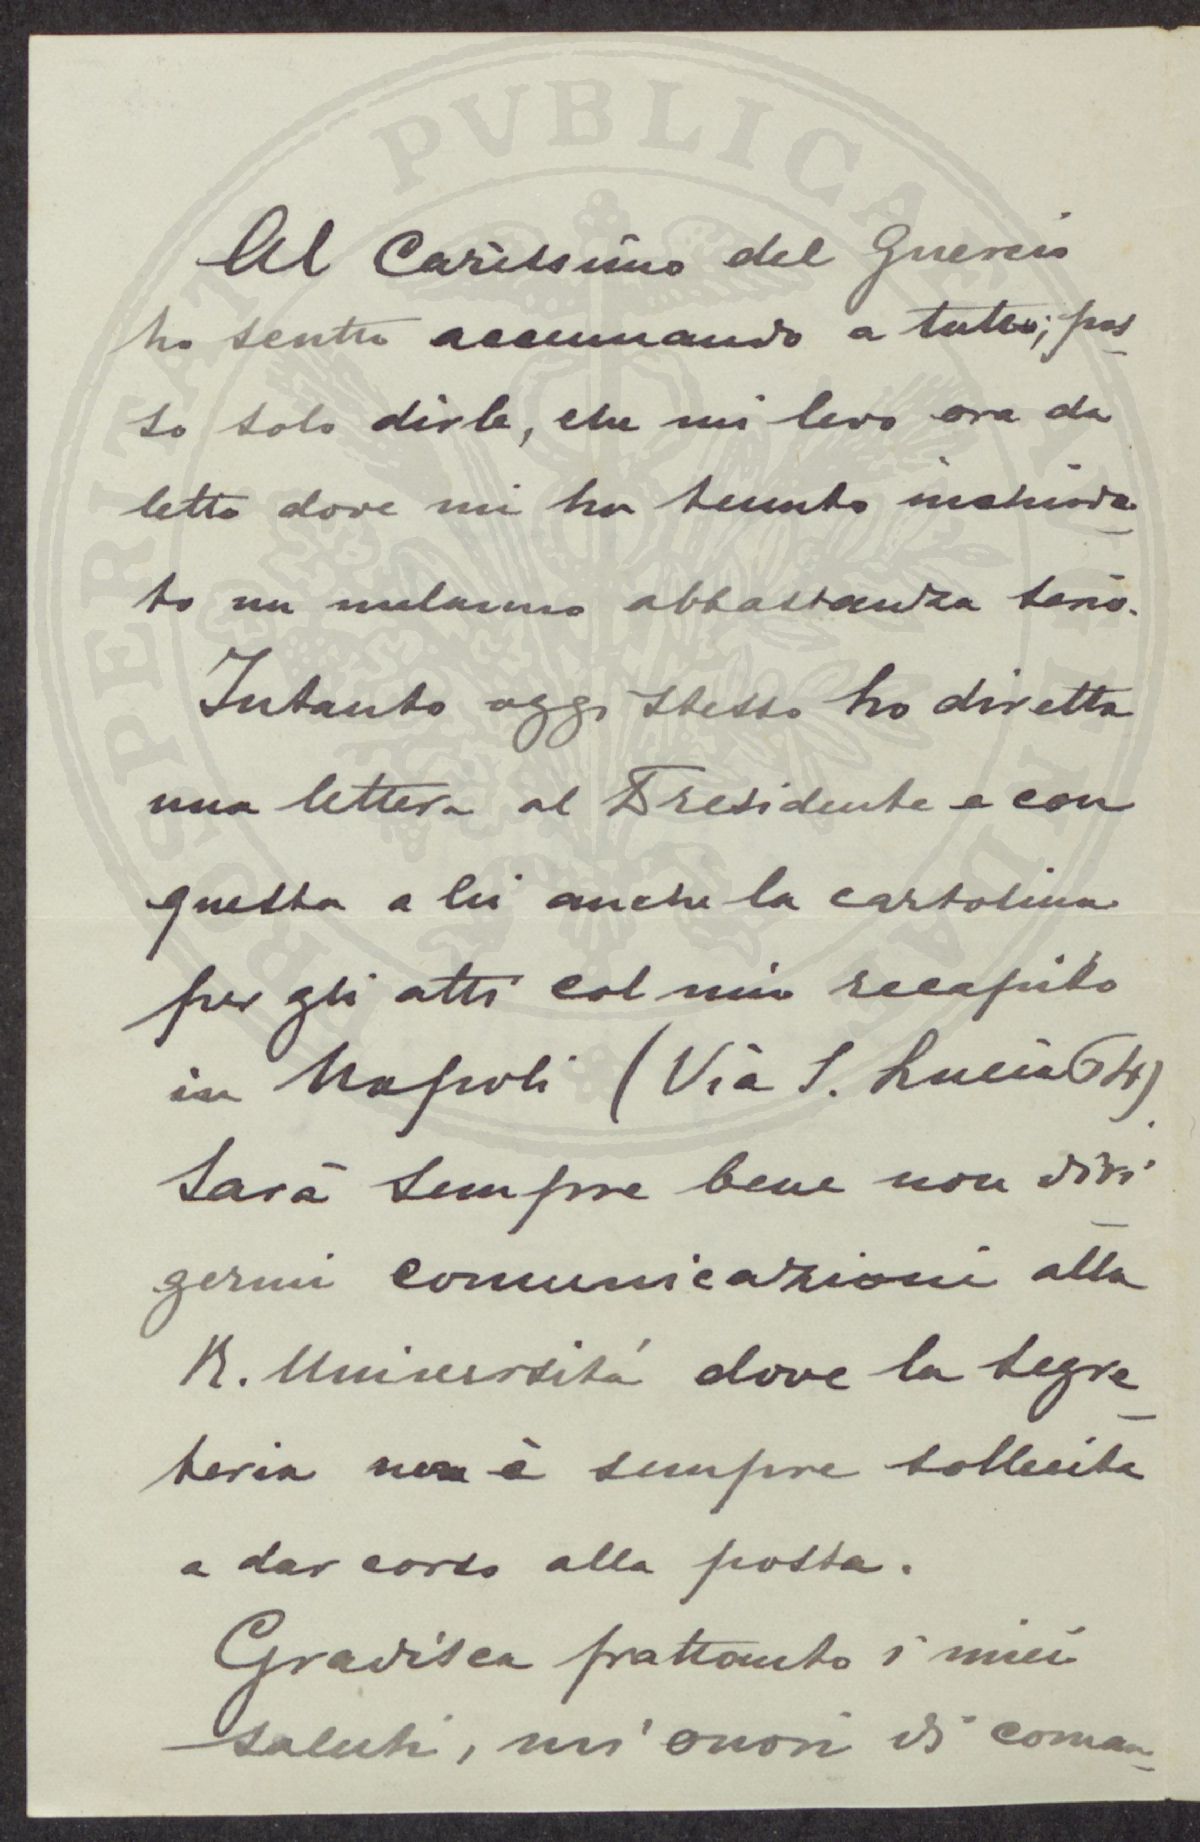 Al Carissimo del Guercio
ho scritto accennando a tutto; pos-
so solo dirle, che mi levo ora da
letto dove mi ha tenuto inchioda-
to un malanno abbastanza serio.
Intanto oggi stesso ho diretta
una lettera al Presidente e con
questa a lei anche la cartolina
per gli atti col mio recapito
in Napoli (Via S. Lucia 64)
Sarà sempre bene non diri-
germi comunicazioni alla
R. Università dove la segre-
teria non è sempre sollecita
a dar corso alla posta.
Gradisca frattanto i miei
saluti, mi onori di coman-
PROSPERITATI PVBLICAE